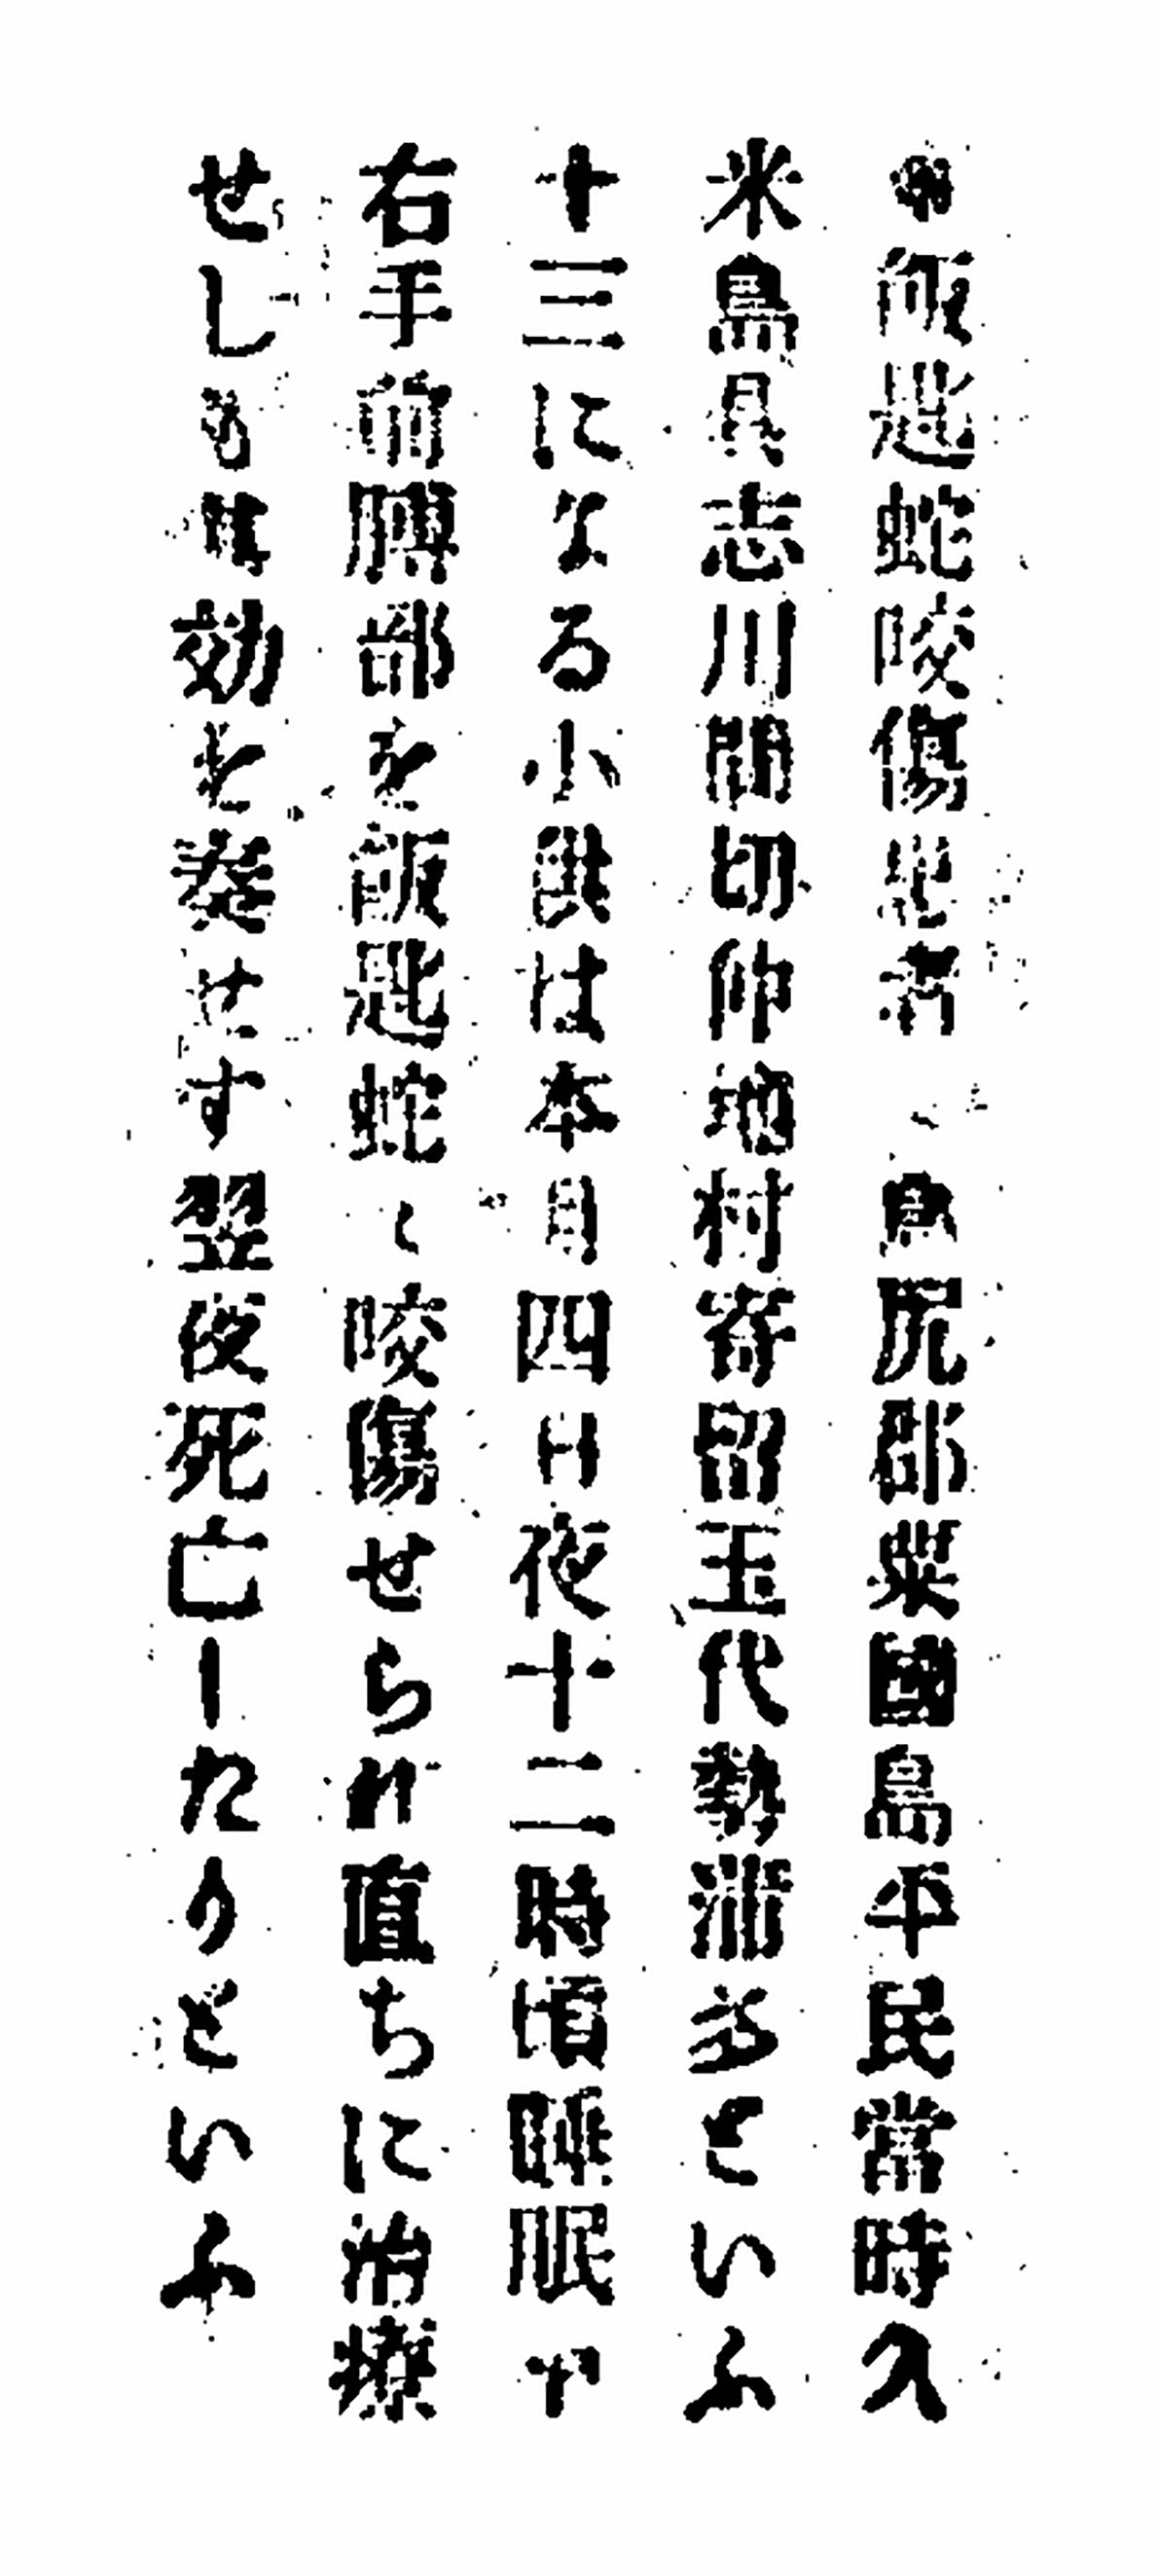 ●飯匙蛇咬傷患者 島尻郡粟國島平民當時久
米島具志川間切仲地村寄留玉代勢蒲多といふ
十三になる小供は本月四日夜十二時頃睡眠中
右手前膊部を飯匙蛇に咬傷せられ直ちに治療
せしも其効を奏せす翌夜死亡したりといふ